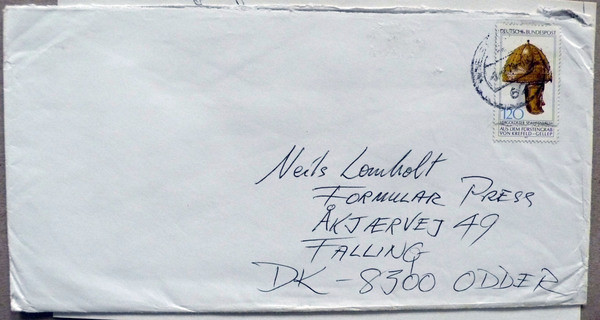 DEUTSCHE BUNDESPOST
120
AUS DEM FÜRSTENGRAB
VON KREFELD-GELLEP
Neils Lomholt
FORMULAR PRESS
ÅKJÆRVEJ 49
FALLING
DK-8300 ODDER